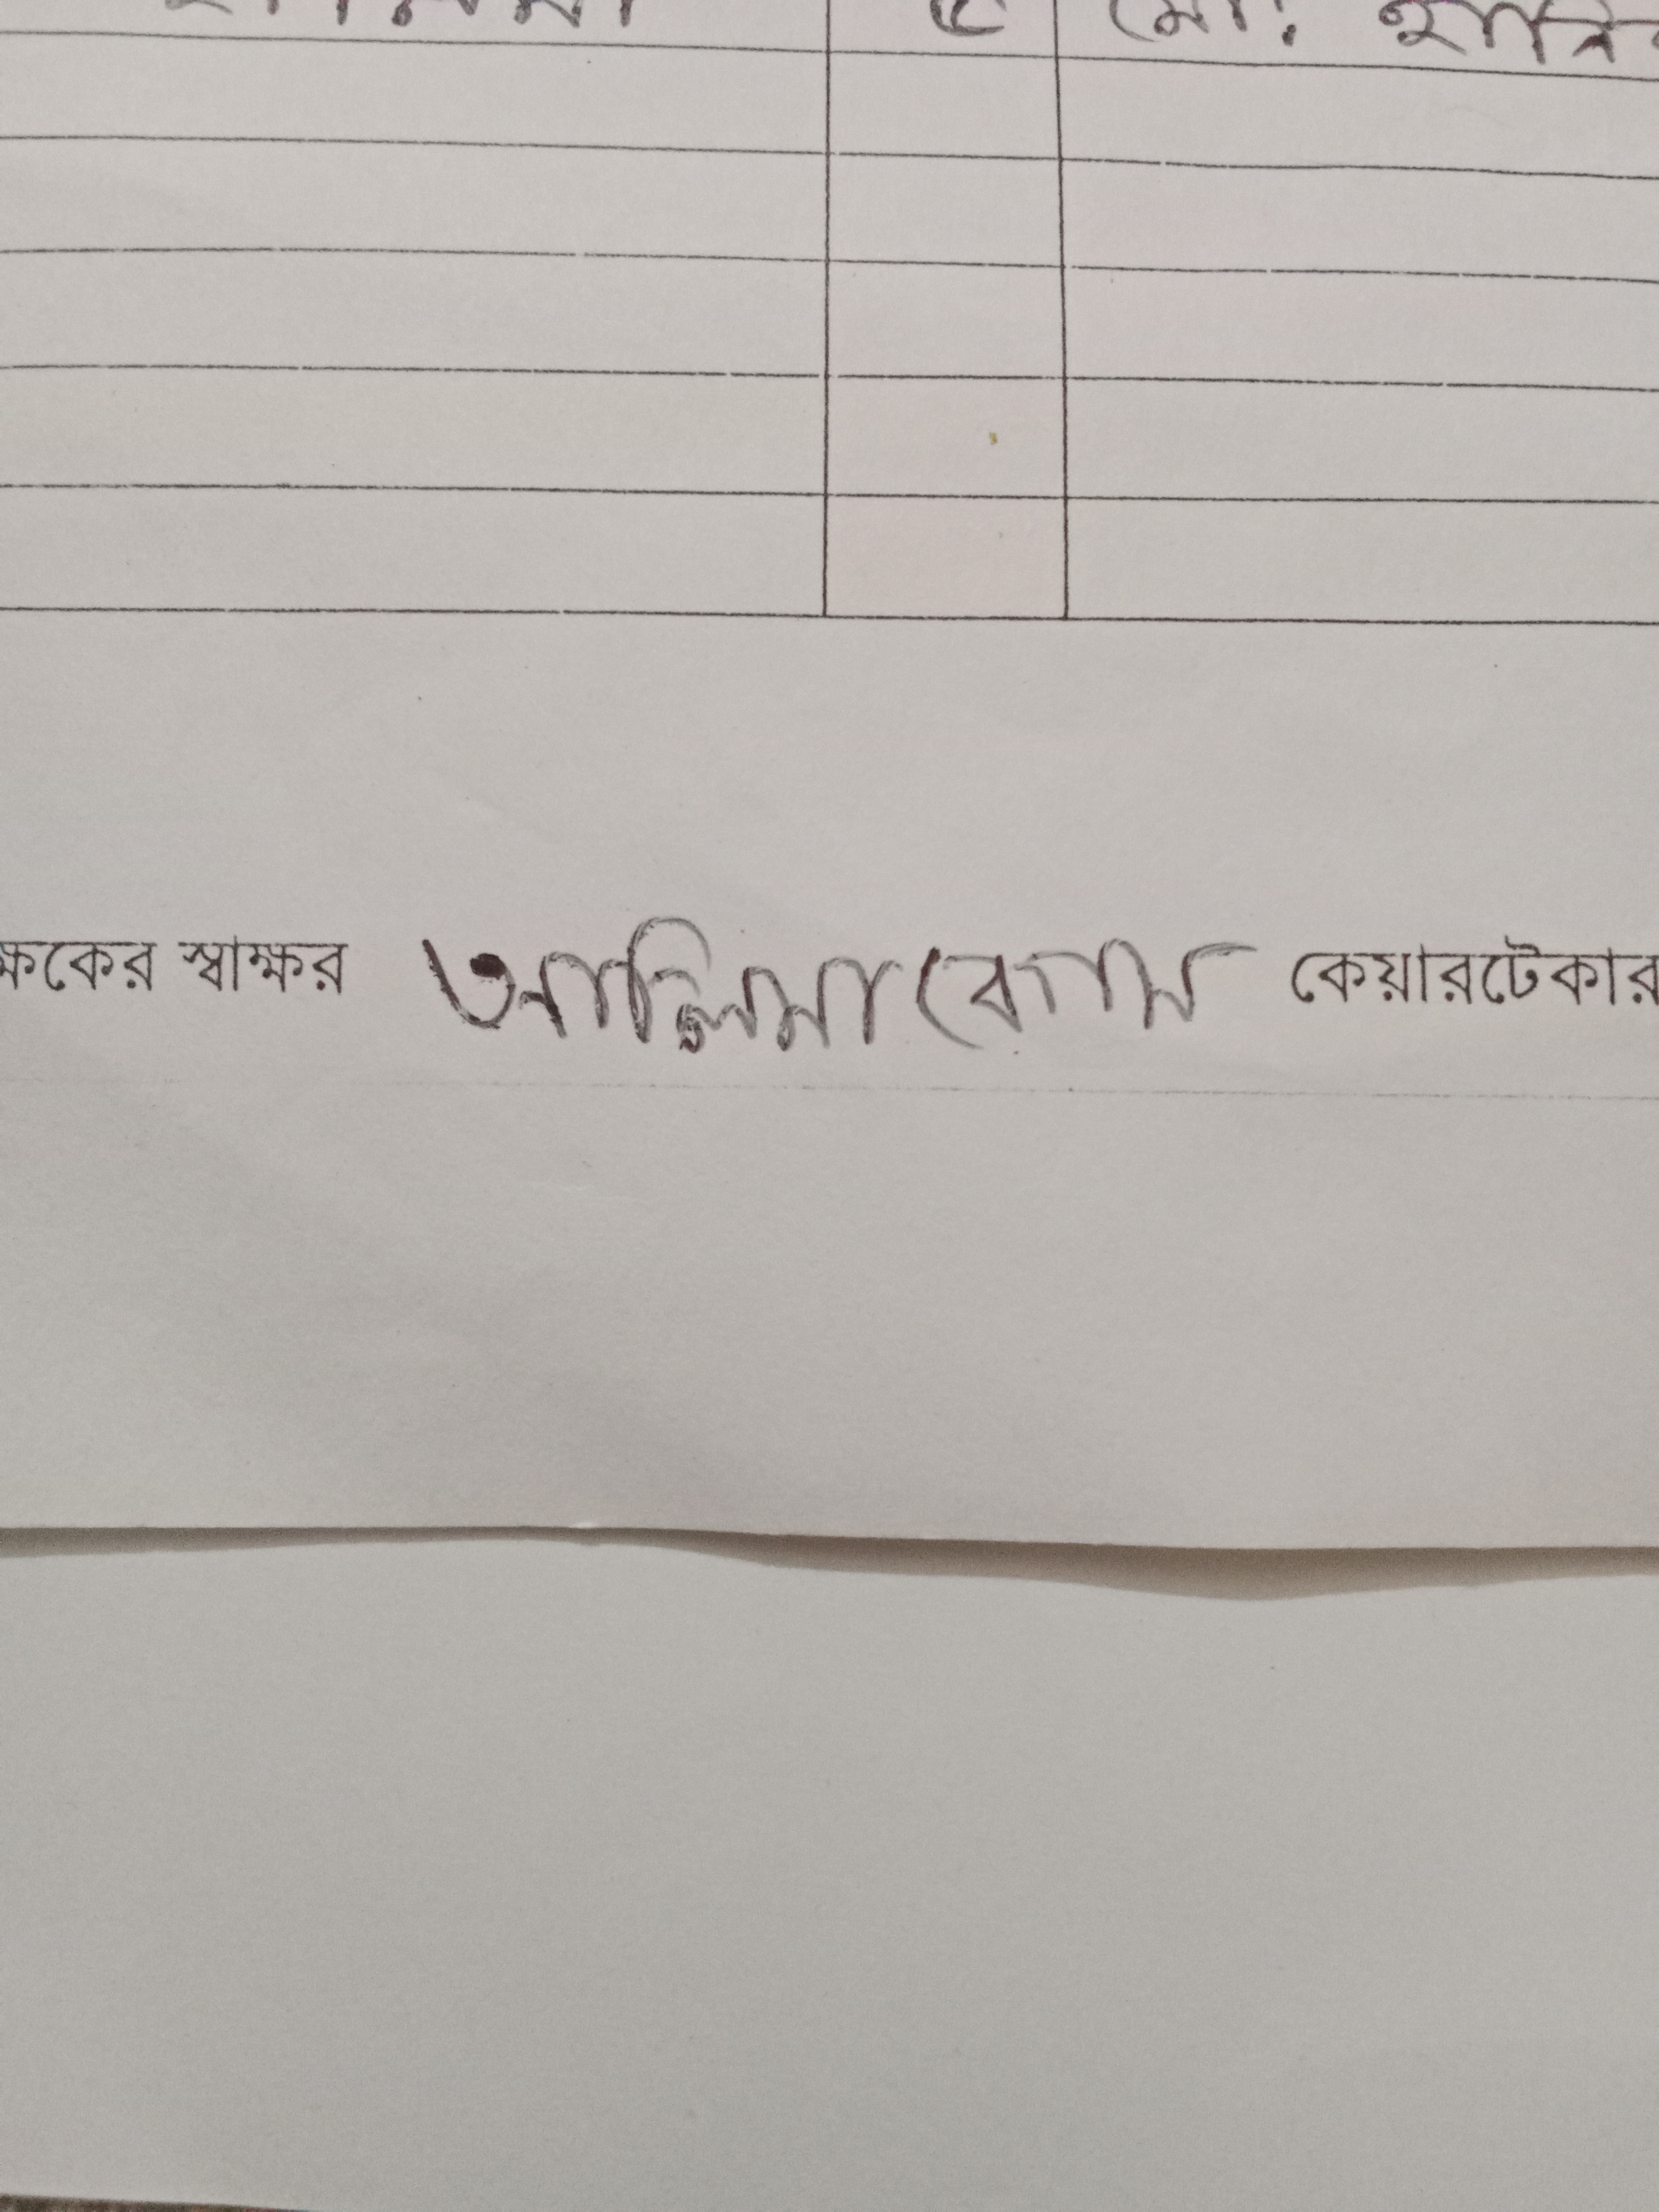 ৫ মো: হানি
ক্ষকের স্বাক্ষর আলিমা বেগম কেয়ারটেকার